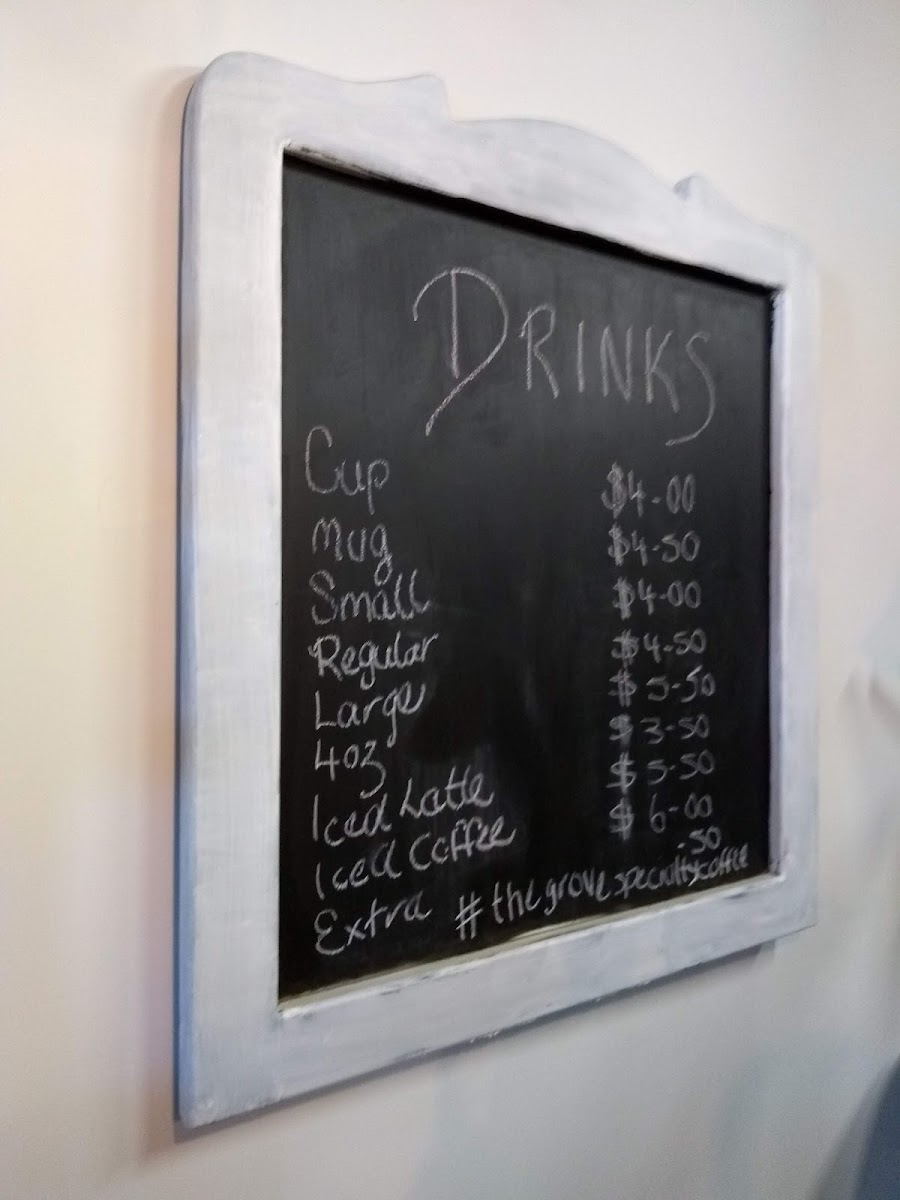 DRINKS
Cup $4-00
Mug $4-50
Small $4-00
Regular $4-50
Large $5-50
4oz $3-50
Iced Latte $5-50
Iced Coffee $6-00
Extra -50
#thegrovespecialtycoffee